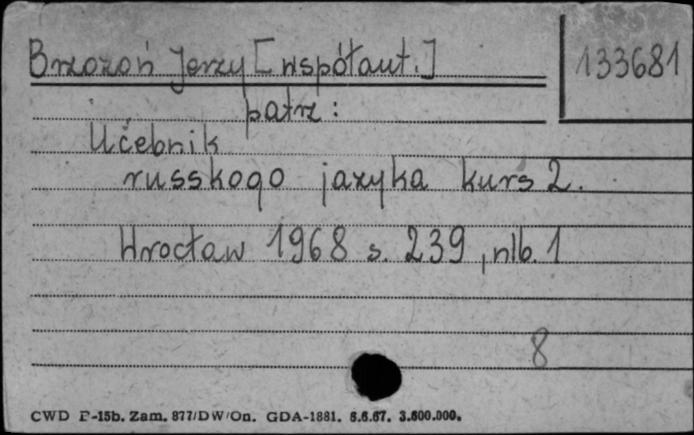 Brzozoń Jerzy [współaut.]
133681
patrz:
Učebnik
russkogo jazyka kurs 2.
Wrocław 1968 s. 239, nlb. 1
8
CWD P-15b. Zam. 877/DW/On. GDA-1881. 6.6.67. 3.600.000.